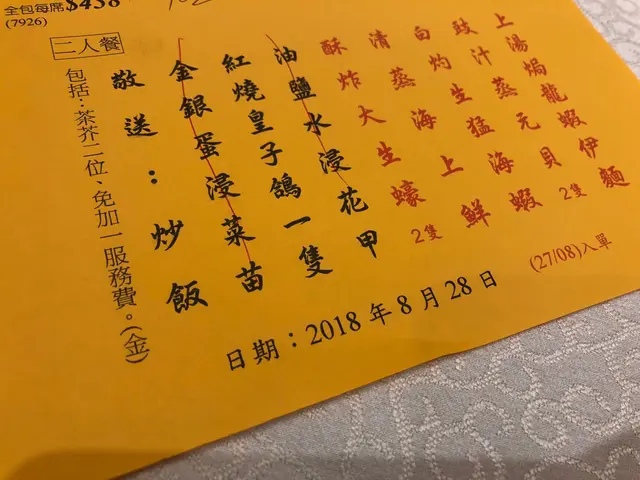 全包每席 $438
(7926)
二人餐
上湯焗龍蝦伊麵
豉汁蒸元貝 2隻
白灼生猛海蝦
清蒸海上鮮
酥炸大生蠔 2隻
油鹽水浸花甲
紅燒皇子鴿一隻
金銀蛋浸菜苗
敬送：炒飯
包括：茶芥二位、免加一服務費。(金)
(27/08)入單
日期：2018 年 8 月 28 日